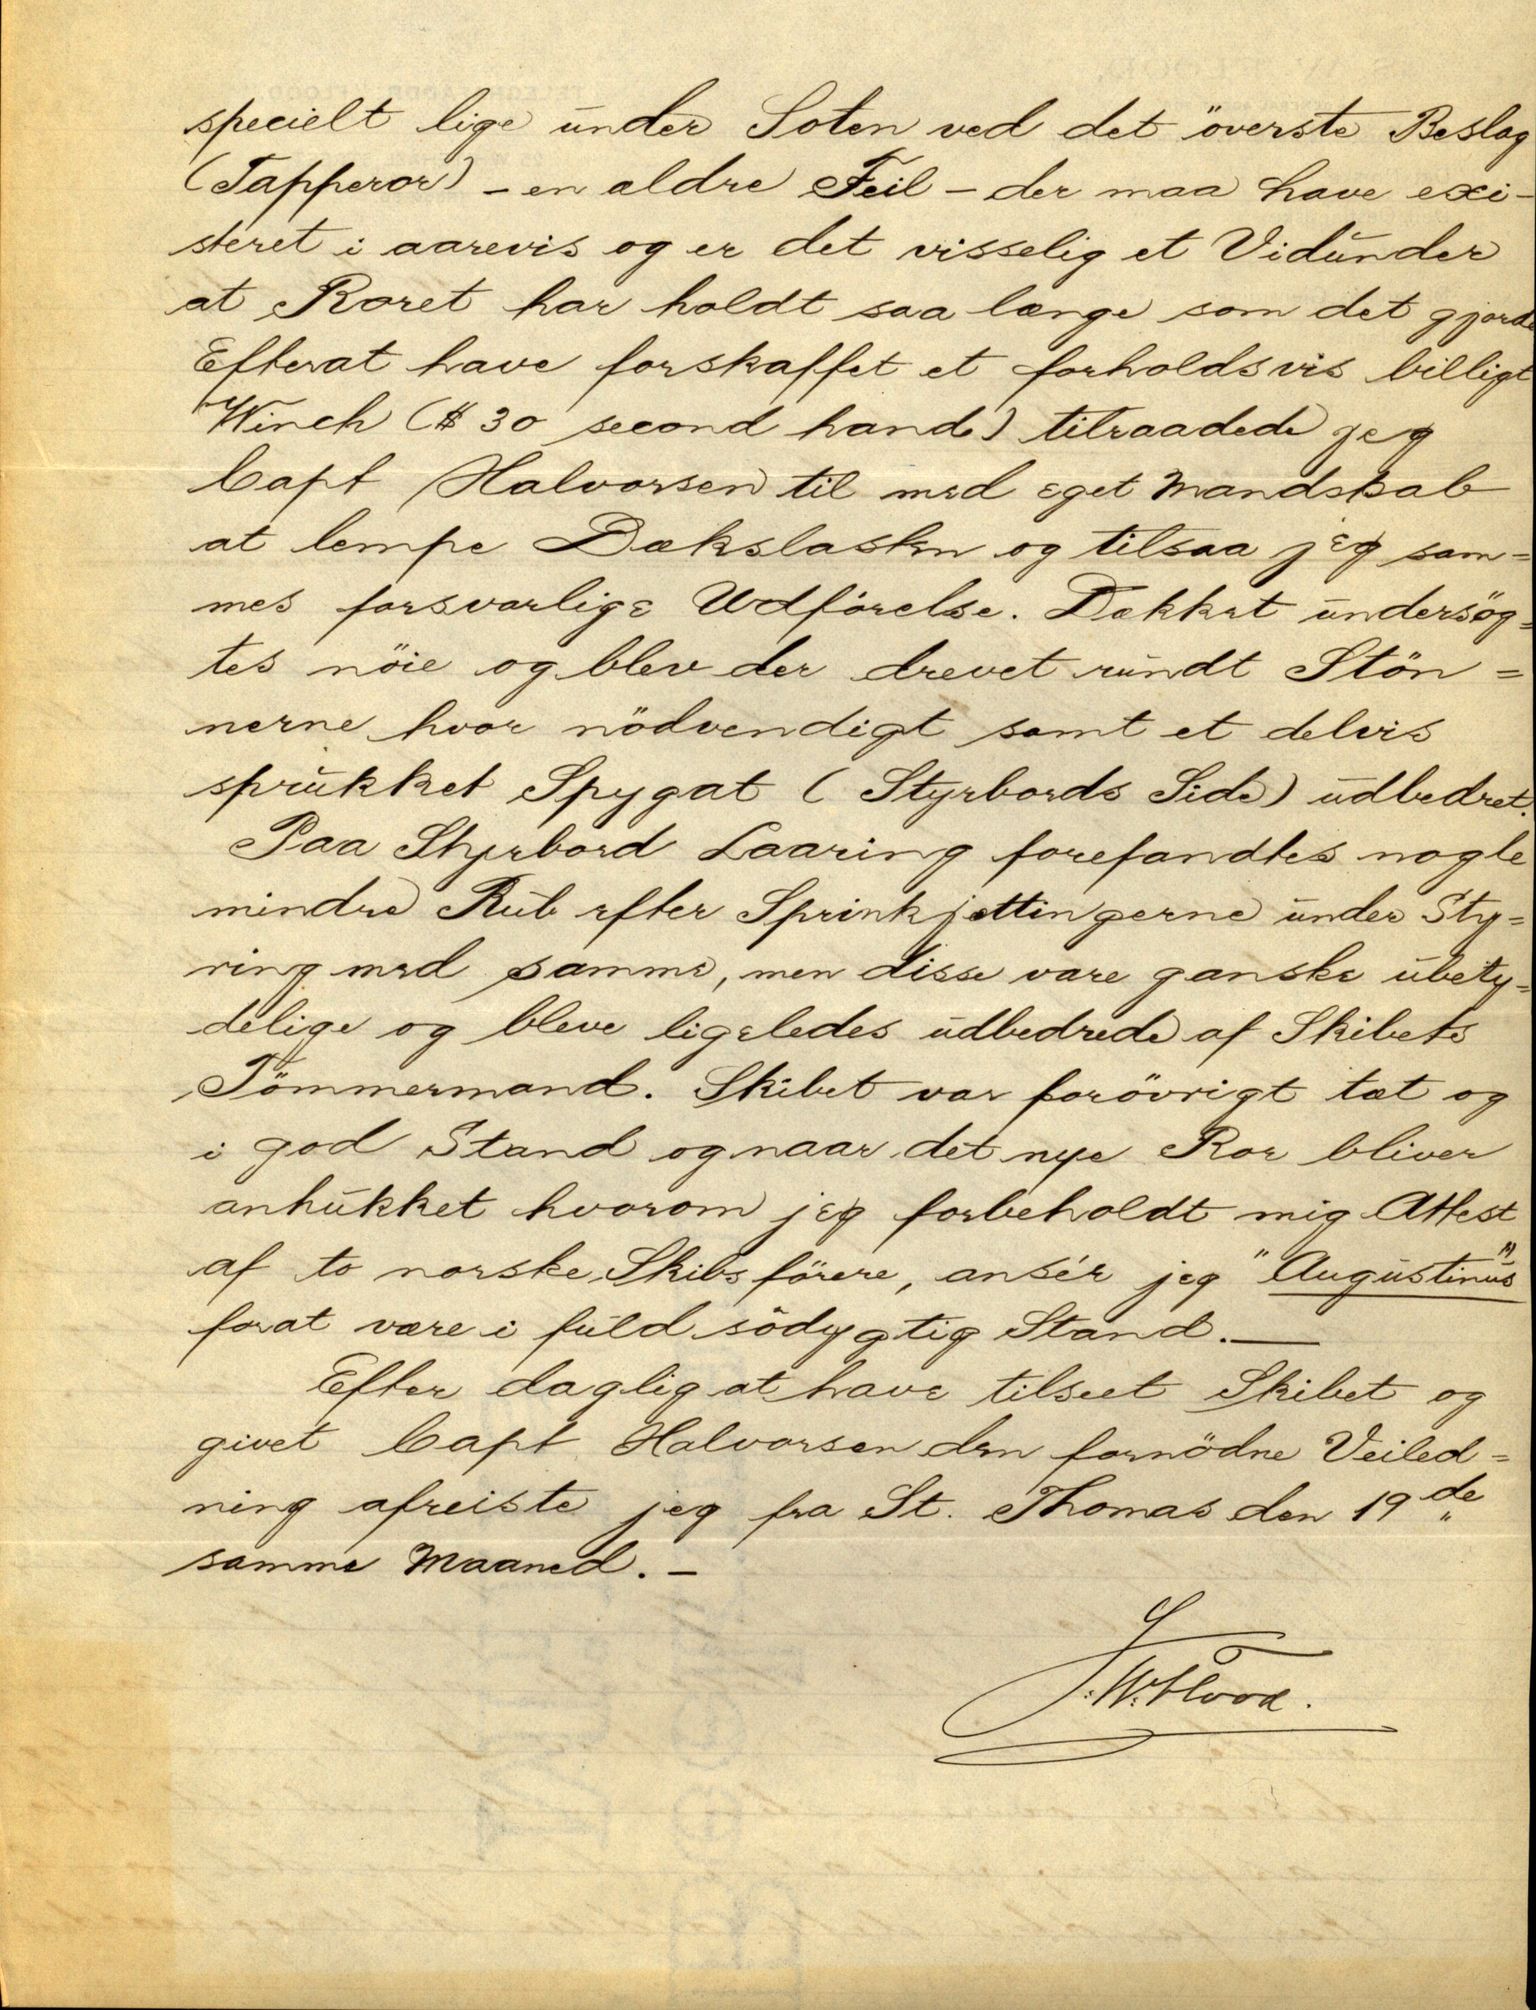 specielt lige under Soten ved det överste Beslag
(Tapperor) – en ældre Feil – der maa have exi-
steret i aarevis og er det visselig et Vidunder
at Roret har holdt saa længe som det gjorde
Efterat have forskaffet et forholdsvis billigt
Winch ($ 30 second hand) tilraadede jeg
Capt Halvorsen til med eget Mandskab
at lempe Dækslasten og tilsaa jeg sam=
mes forsvarlige Udförelse. Dækket undersög=
tes nöie og blev der drevet rundt Stön=
nerne hvor nödvendigt samt et delvis
sprukket Spygat (Styrbords Side) udbedret.
Paa Styrbord Laaring forefandtes nogle
mindre Rub efter Sprinkjettingerne under Sty=
ring med samme, men disse vare ganske ubety=
delige og bleve ligeledes udbedrede af Skibets
Tömmermand. Skibet var forövrigt tæt og
i god Stand og naar det nye Ror bliver
anhukket hvorom jeg forbeholdt mig Attest
af to norske Skibsförere, ansér jeg "Augustinus"
forat være i fuld södygtig Stand. —
Efter daglig at have tilseet Skibet og
givet Capt Halvorsen den fornödne Veiled=
ning afreiste jeg fra St. Thomas den 19de
samme Maaned. –
J. W. Flood.